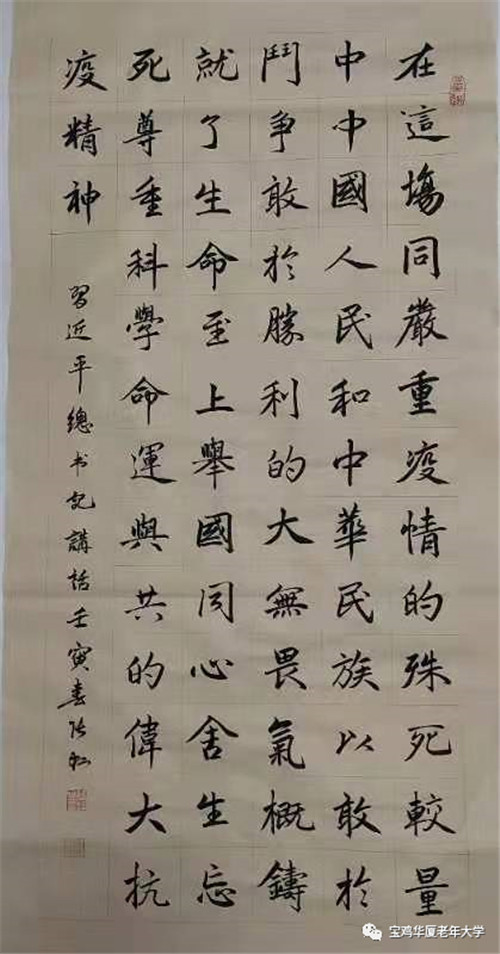 在這場同嚴重疫情的殊死較量
中中國人民和中華民族以敢於
鬥爭敢於勝利的大無畏氣概鑄
就了生命至上舉國同心舍生忘
死尊重科學命運與共的偉大抗
疫精神
習近平總书記講話壬寅春
宝鸡华厦老年大学